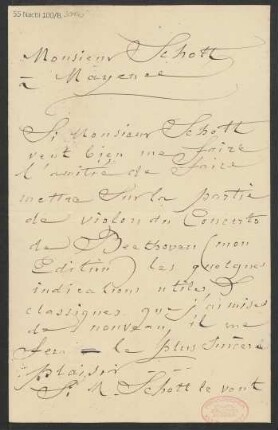 55 Nachl 100/B
Monsieur Schott
à Mayence
Si Monsieur Schott
veut bien me faire
l'amitié de faire
mettre sur la partie
de violon du Concerto
de Beethoven (mon
Edition) les quelques
indications utiles &
classiques que j'ai mises
de nouveau, il me
fera le plus sincère
plaisir
Si M. Schott le veut